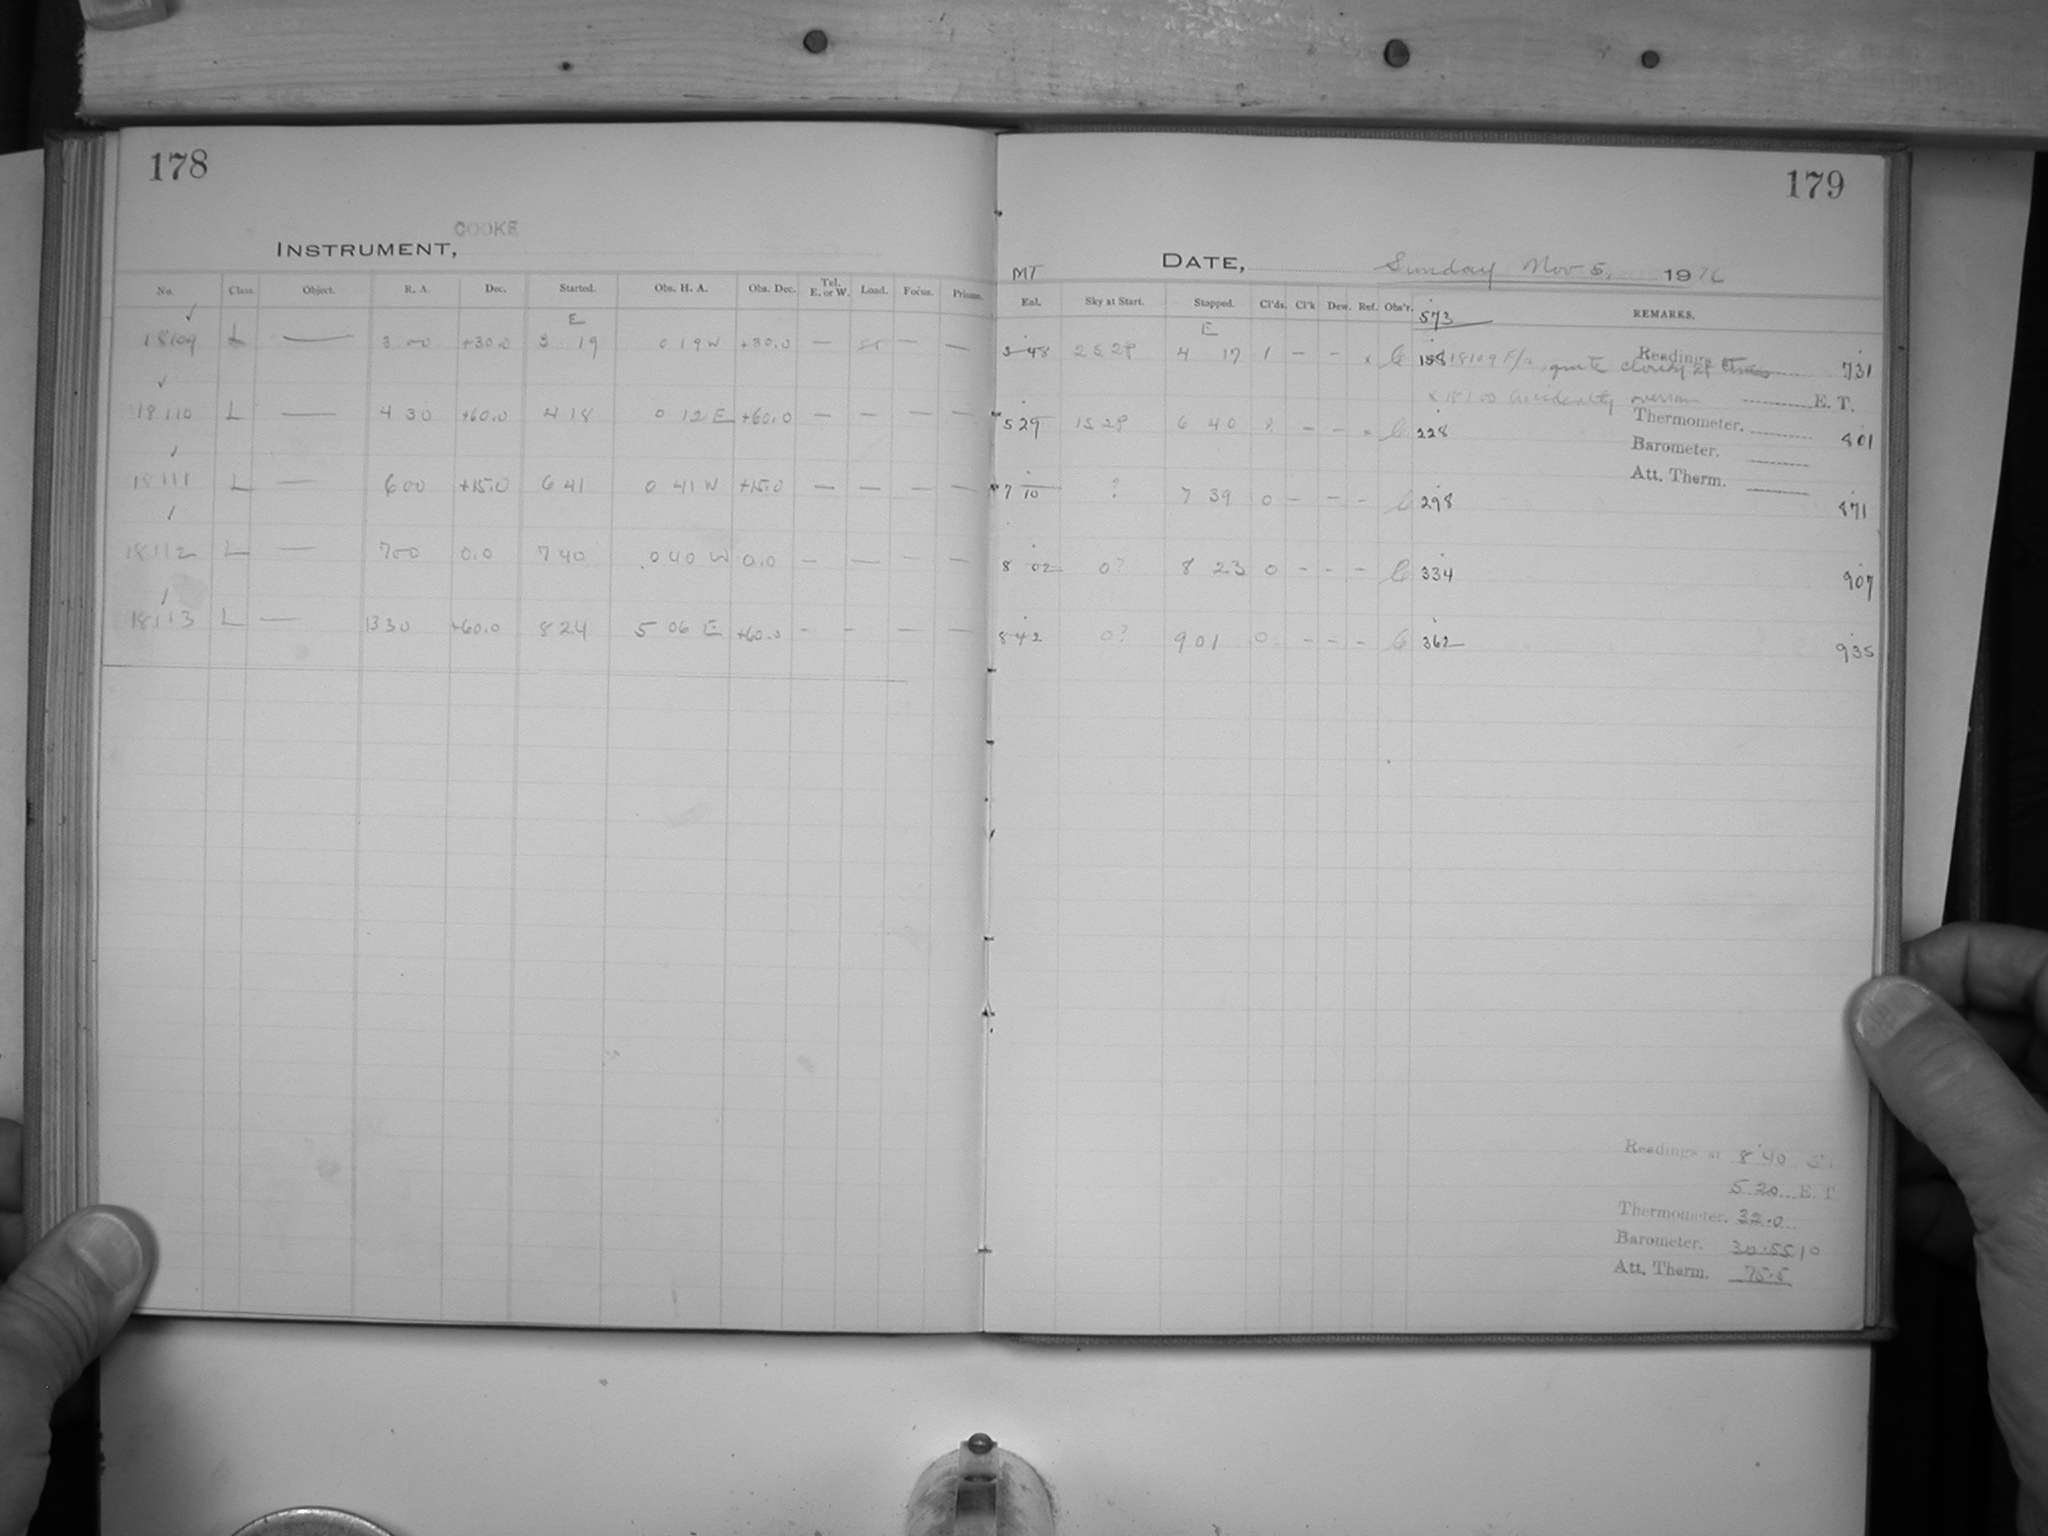 178
COOKE
INSTRUMENT,
No. Class. Object. R. A. Dec. Started. Obs. H. A. Obs. Dec. Tel. E. or W. Load. Focus. Prisms.
E
18109 L — 3 00 +30.0 3 19 0 19 W +30.0 — — —
18110 L — 4 30 +60.0 4 18 0 12 E +60.0 — — — —
18111 L — 6 00 +15.0 6 41 0 41 W +15.0 — — — —
18112 L — 7 00 0.0 7 40 0 40 W 0.0 — — — —
18113 L — 13 30 +60.0 8 24 5 06 E +60.0 - - — —
179
MT
DATE, Sunday Nov 5, 1916
Eal. Sky at Start. Stopped. Cl'ds. Cl'k Dew. Ref. Obs'r. REMARKS.
573
E
3 48 2 S 2 P 4 17 1 — — x 158 18109 F/a, quite cloudy at times 731
Readings at
x 18100 accidentally overrun E. T.
5 29 1 S 2 P 6 40 ? — — 228 801
Thermometer.
Barometer.
Att. Therm.
7 10 ? 7 39 0 — — — 298 871
8 02 0? 8 23 0 - - - 334 907
8 42 0? 9 01 0 - - - 362 935
Readings at 8 40 S T.
5 20 E. T
Thermometer. 32.0
Barometer. 30.5510
Att. Therm. 75.5